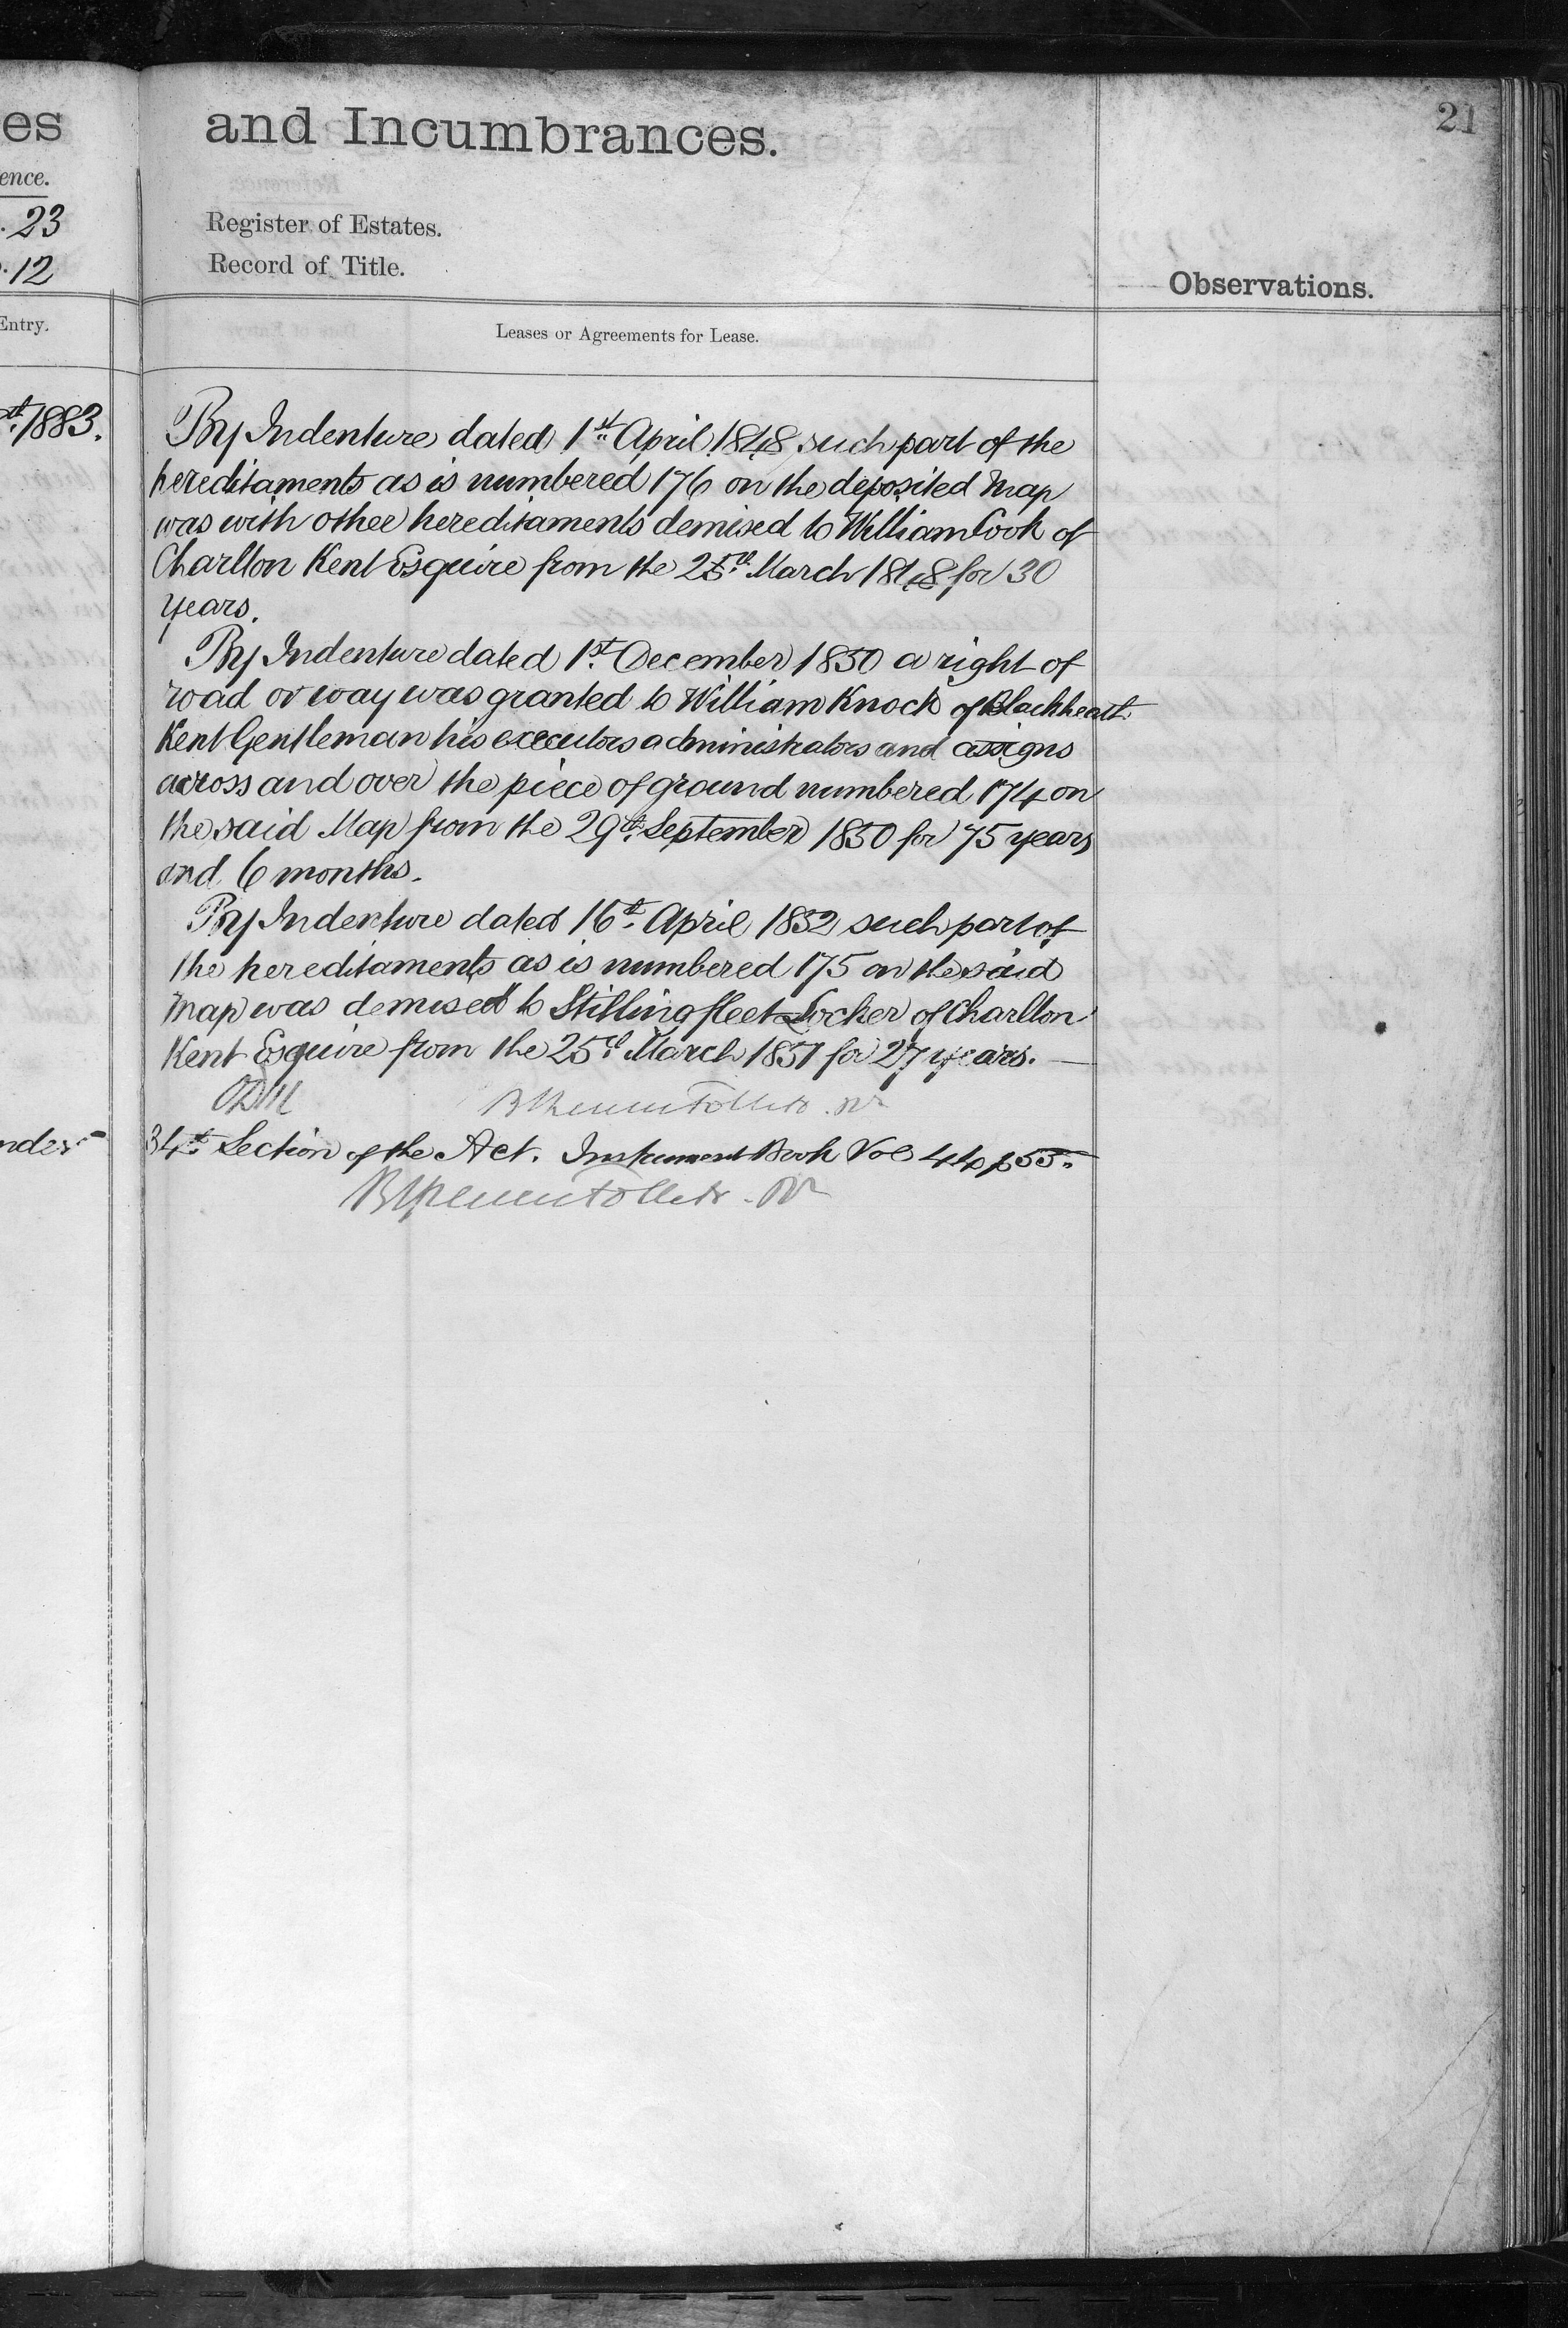 es
and Incumbrances.
21
ence.
. 23
. 12
Register of Estates.
Record of Title.
Observations.
Entry.
Leases or Agreements for Lease.
th 1883.
By Indenture dated 1st April 1848 such part of the
hereditaments as is numbered 176 on the deposited Map
was with other hereditaments demised to William Cook of
Charlton Kent Esquire from the 25th March 1848 for 30
years.
By Indenture dated 1st December 1850 a right of
road or way was granted to William Knock of Blackheath
Kent Gentleman his executors administrators and assigns
across and over the piece of ground numbered 174 on
the said Map from the 29th September 1850 for 75 years
and 6 months.
By Indenture dated 16th April 1852 such part of
the hereditaments as is numbered 175 on the said
Map was demised to Stillingfleet Locker of Charlton
Kent Esquire from the 25th March 1851 for 27 years.
nder
34th Section of the Act. Instrument Book Vol 44 p 55.